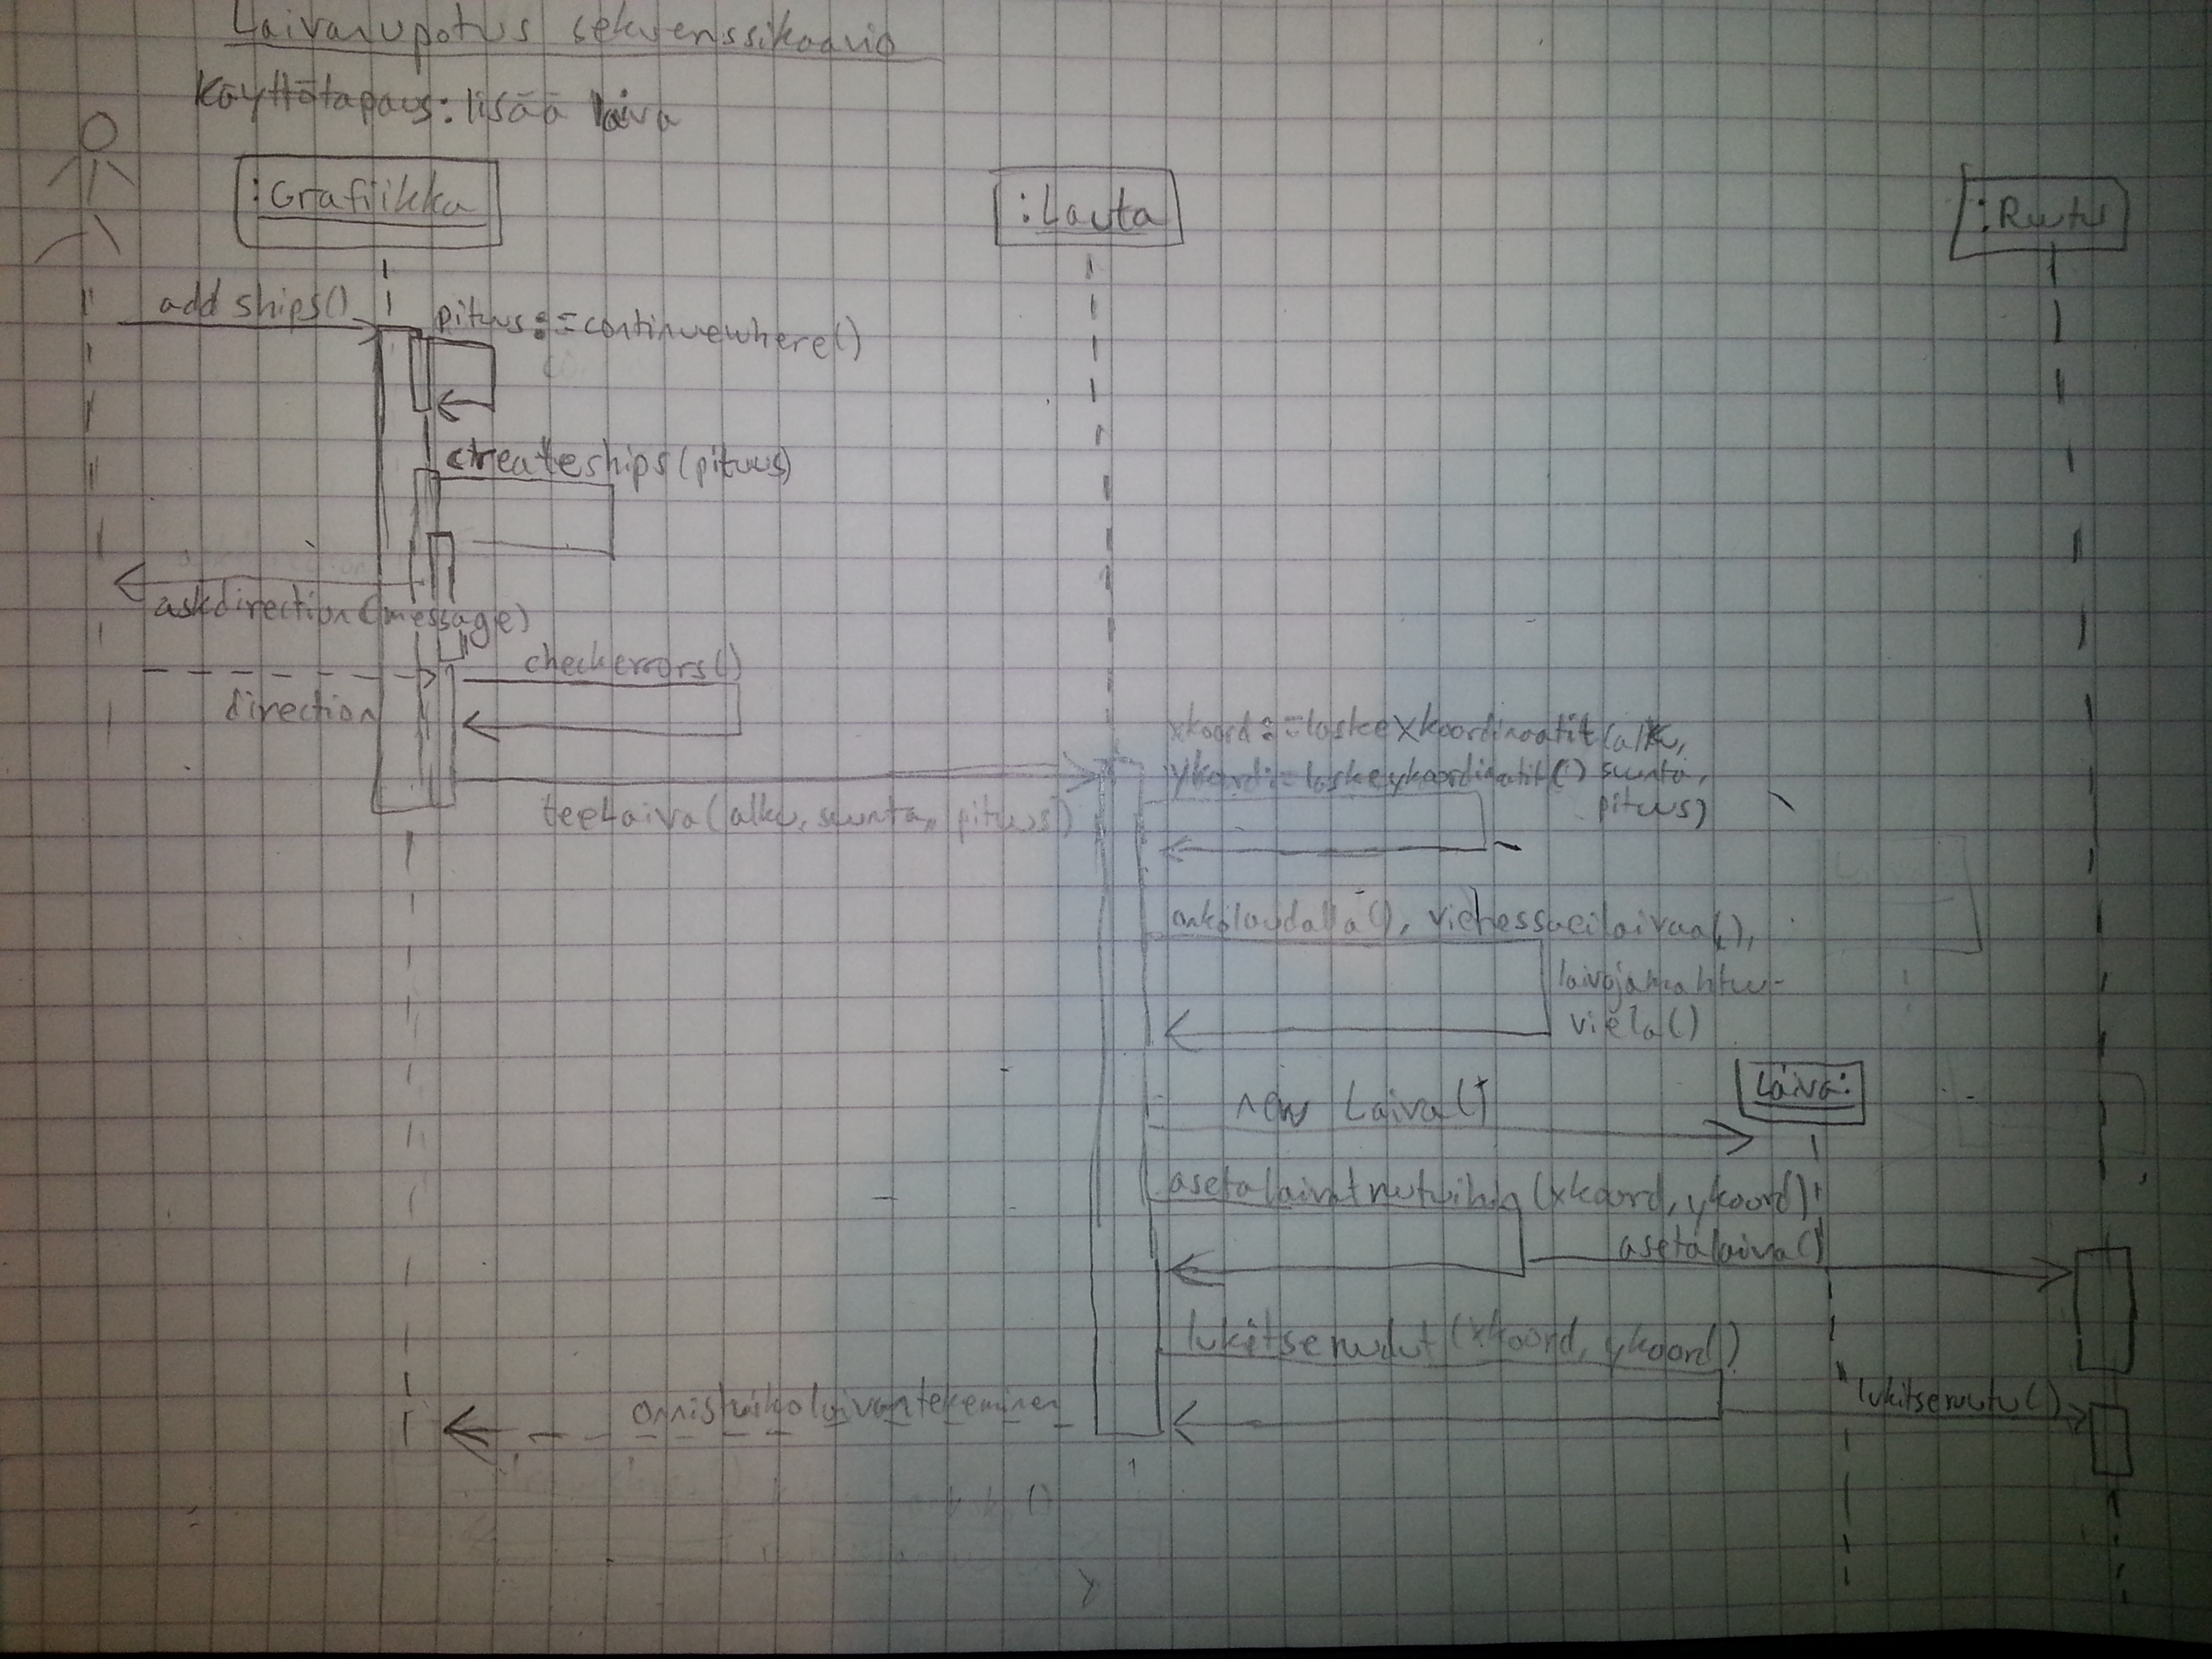 Laivanupotus sekvenssikaavio
Käyttötapaus: lisää laiva
:Grafiikka
:Lauta
:Ruutu
add ships()
pituus:=continuewhere()
createships(pituus)
askdirection(message)
checkerrors()
direction
xkoord:=laskexkoordinaatit(alku,
ykoord:=laskeykoordinaatit() suunta,
pituus)
teeLaiva(alku, suunta, pituus)
onkolaudalla(), vieressaeilaivaa(),
laivojamahtuu-
vielä()
Laiva:
new Laiva()
asetalaivatruutuihin(xkoord, ykoord)
asetalaiva()
lukitseruudut(xkoord, ykoord)
lukitseruutu()
onnistuikolaivantekeminen